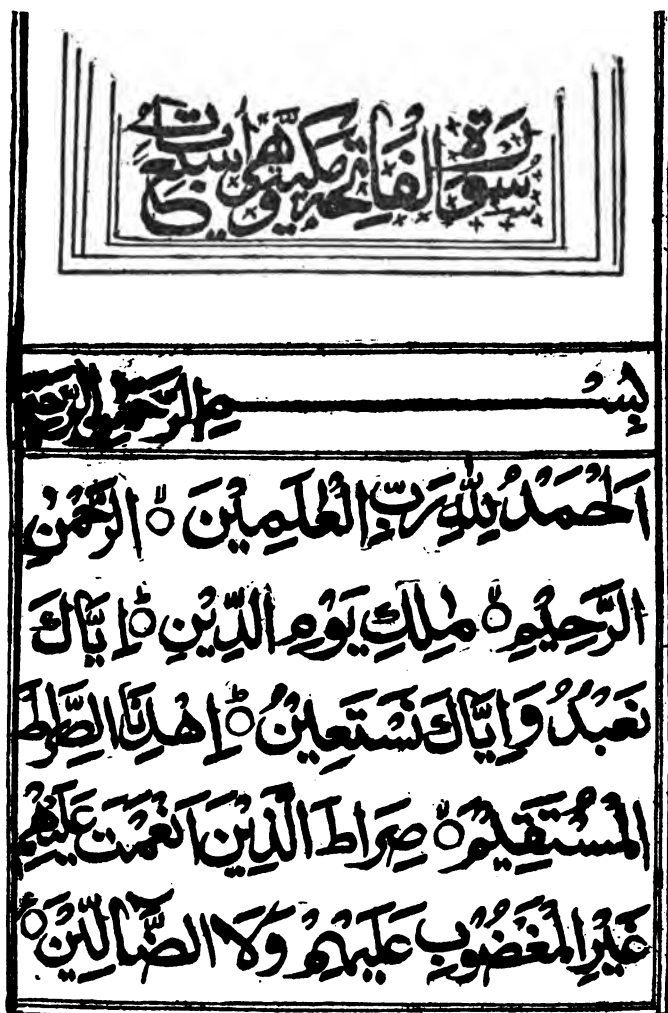 سُورَةُ الْفَاتِحَةِ مَكِّيَّةٌ وَّهِيَ سَبْعُ اٰيَاتٍ
بِسْمِ الرَّحْمٰنِ الرَّحِيْمِ
اَلْحَمْدُ لِلّٰهِ رَبِّ الْعٰلَمِيْنَ ۙ الرَّحْمٰنِ
الرَّحِيْمِ ۙ مٰلِكِ يَوْمِ الدِّيْنِ ؕ اِيَّاكَ
نَعْبُدُ وَاِيَّاكَ نَسْتَعِيْنُ ؕ اِهْدِنَا الصِّرَاطَ
الْمُسْتَقِيْمَ ۙ صِرَاطَ الَّذِيْنَ اَنْعَمْتَ عَلَيْهِمْ
غَيْرِ الْمَغْضُوْبِ عَلَيْهِمْ وَلَا الضَّآلِّيْنَ